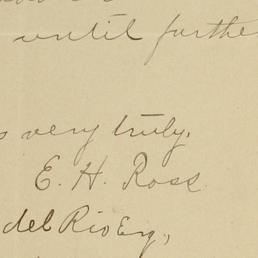 until furthe
s very truly,
E. H. Ross
del Rio Esq,